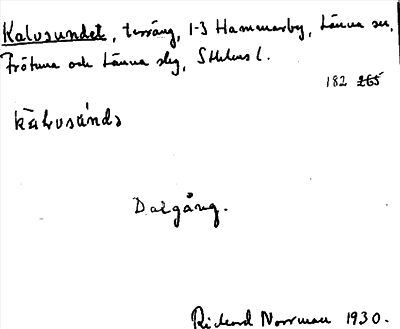 Kalvsundet, terräng, 1-3 Hammarby, Länna sn,
Frötuna och Länna slg, Sthlms l.
182 265
Dalgång.
Rickard Norrman 1930.